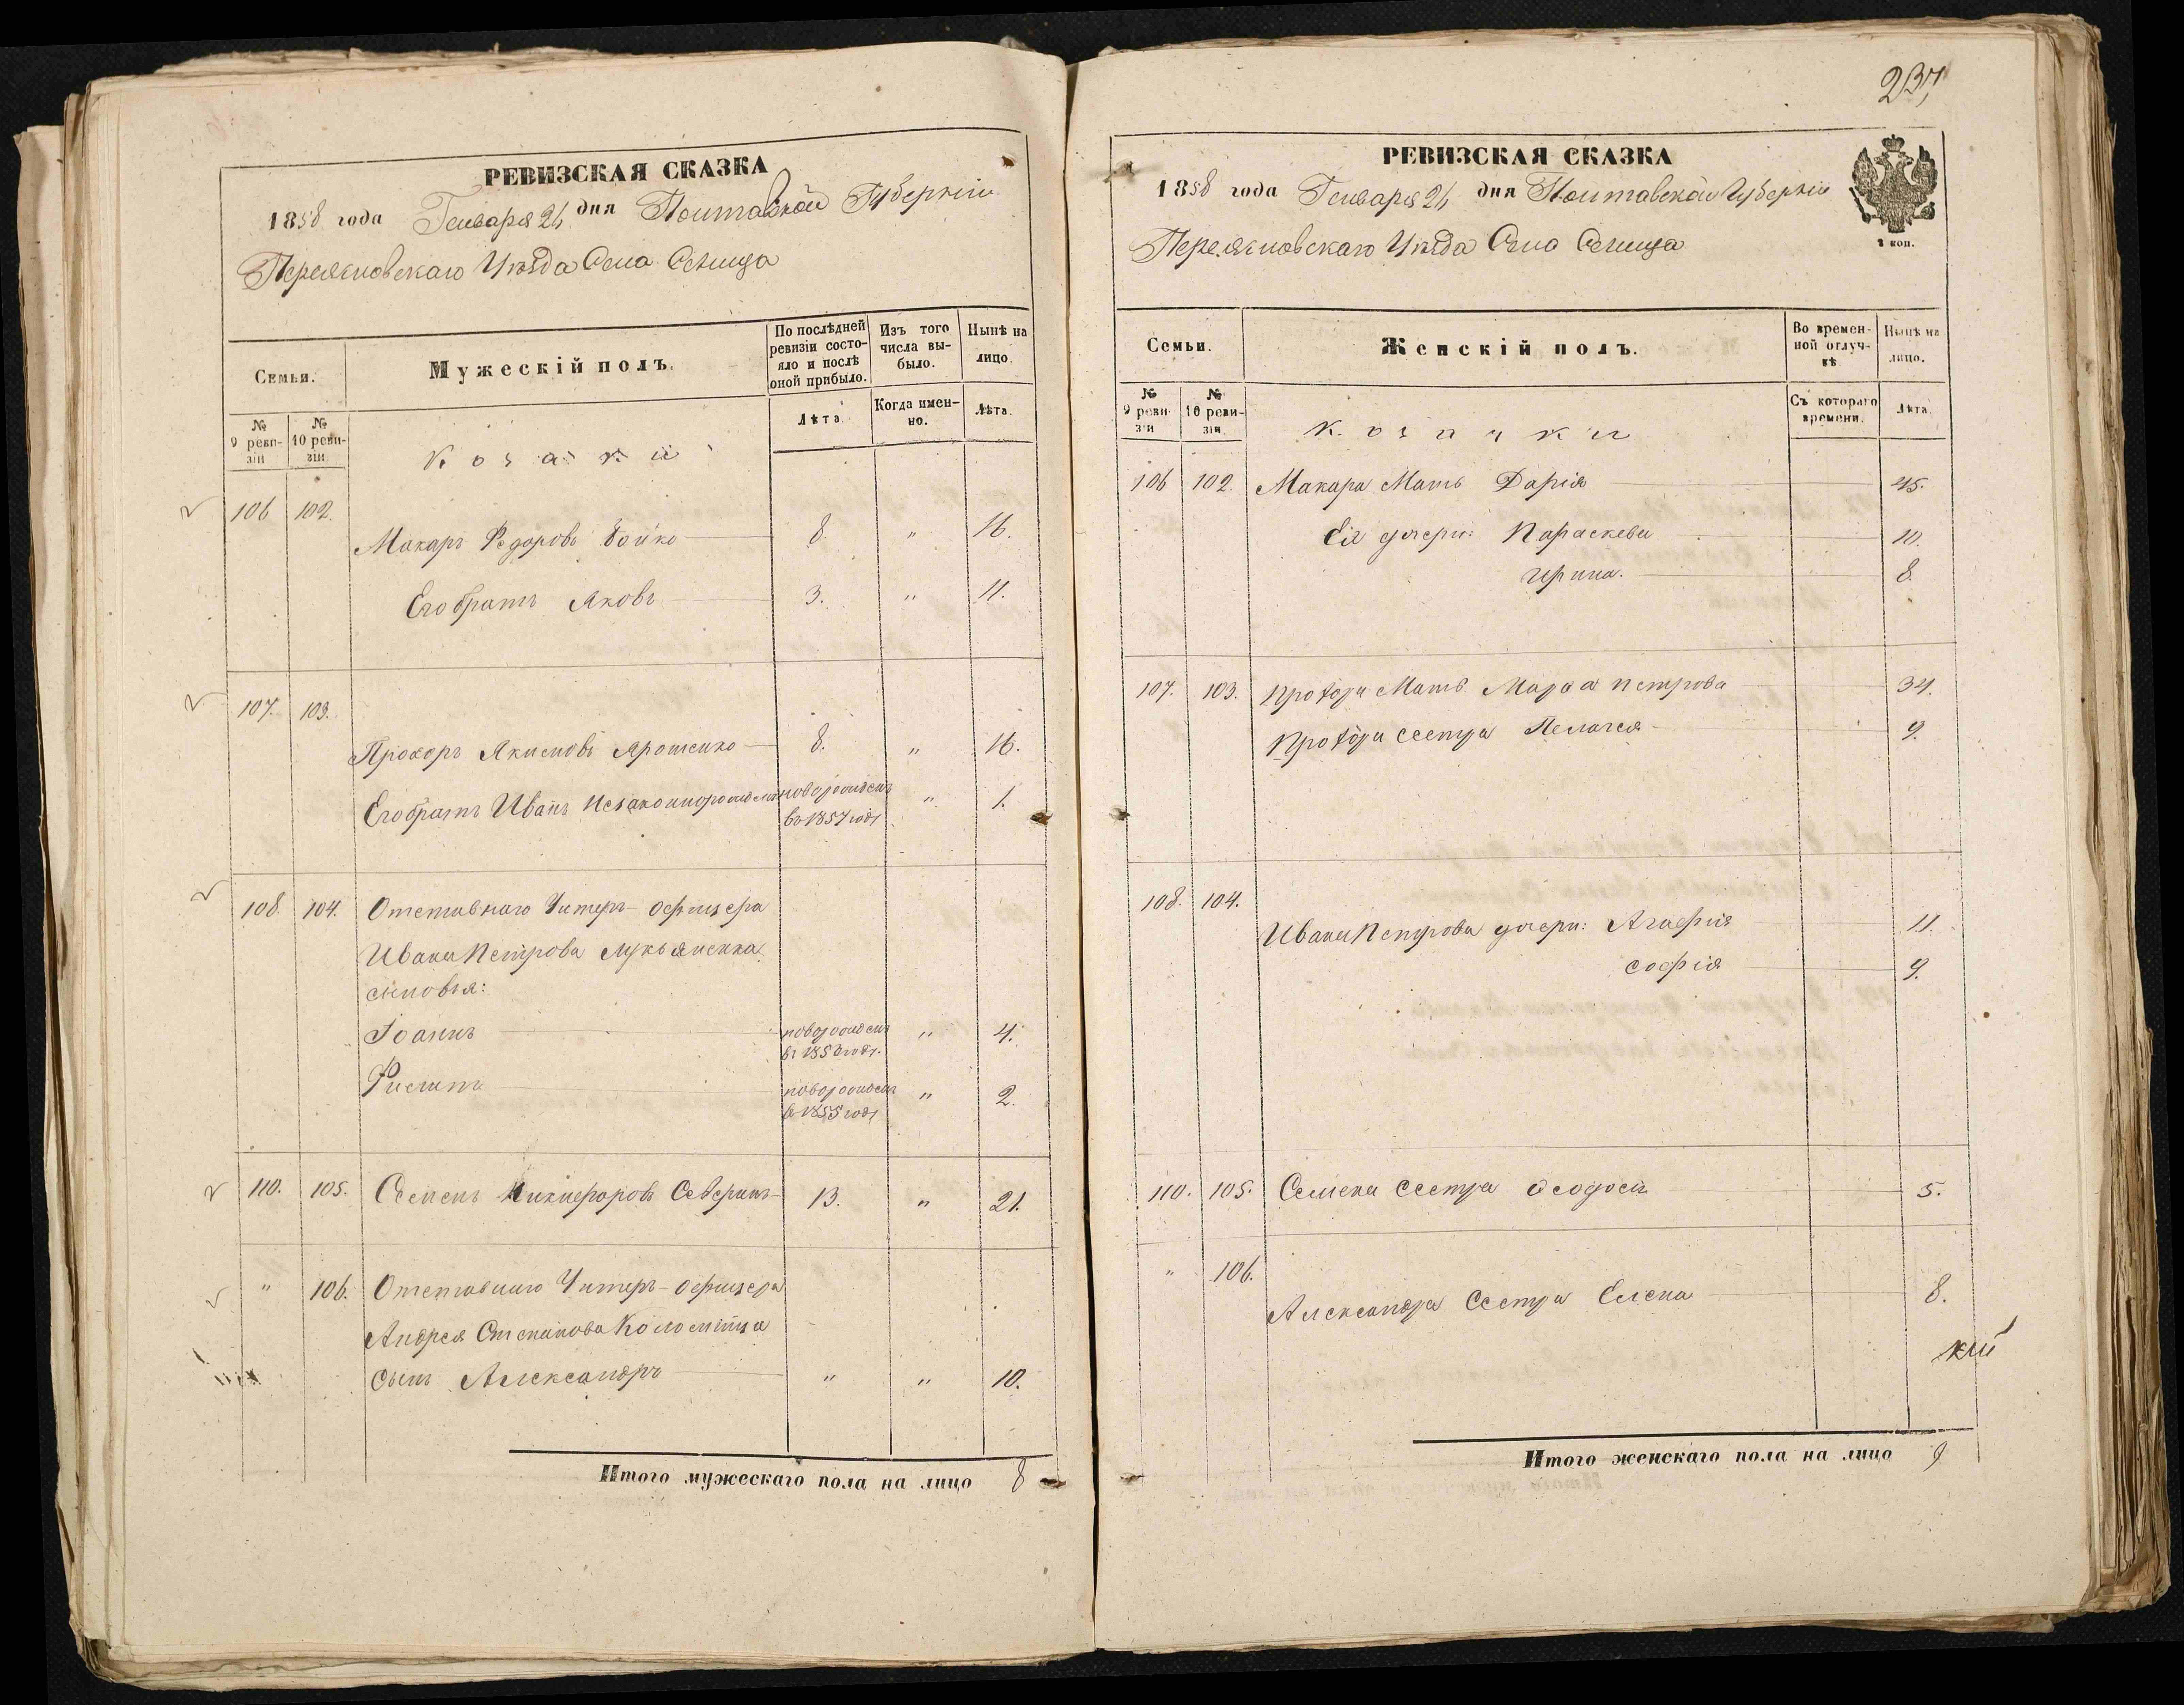 РЕВИЗСКАЯ СКАЗКА
1858 года Генваря 21 дня Полтавской Губерніи
Переяславскаго Уезда Села
Семьи.
Мужескій полъ.
По послѣдней ревизіи состояло и послѣ оной прибыло.
Изъ того числа выбыло.
Нынѣ на лицо.
№ 9 ревизіи
№ 10 ревизіи
Козаки
Лѣта.
Когда именно.
Лѣта.
106 102. Макаръ Федоровъ Бойко 8. " 16.
Его братъ Яковъ 3. " 11.
107. 103. Прохоръ Якимовъ Ярошенко 8. " 16.
Его братъ Иванъ Незаконнорожден новорожден " 1.
въ 1857 годѣ
108. 104. Отставнаго Унтеръ-офицера
Ивана Петрова Лукьяненка
сыновья:
Іоаннъ новорожден " 4.
въ 1853 годѣ.
Филипъ новорожден " 2.
въ 1855 годѣ
110. 105. Семенъ Никифоровъ Северинъ 13. " 21.
" 106. Отставнаго Унтеръ-офицера
Андрея Степанова Коломійца
сынъ Александръ " " 10.
Итого мужескаго пола на лицо 8
237
РЕВИЗСКАЯ СКАЗКА
1858 года Генваря 21 дня Полтавской Губерніи
Переяславскаго Уезда Села
2 коп.
Семьи.
Женскій полъ.
Во временной отлучкѣ
Нынѣ на лицо.
№ 9 ревизіи
№ 10 ревизіи
Козачки
Съ котораго времени.
Лѣта.
106 102. Макара Мать Дарія 45.
Ея дочери: Параскева 10.
Ирина. 8.
107. 103. Прохора Мать Марфа Петрова 34.
Прохора сестра Пелагея 9.
108. 104. Ивана Петрова дочери: Агафія 11.
Софія 9.
110. 105. Семена сестра Феодосія 5.
" 106. Александра Сестра Елена 8.
кій
Итого женскаго пола на лицо 9